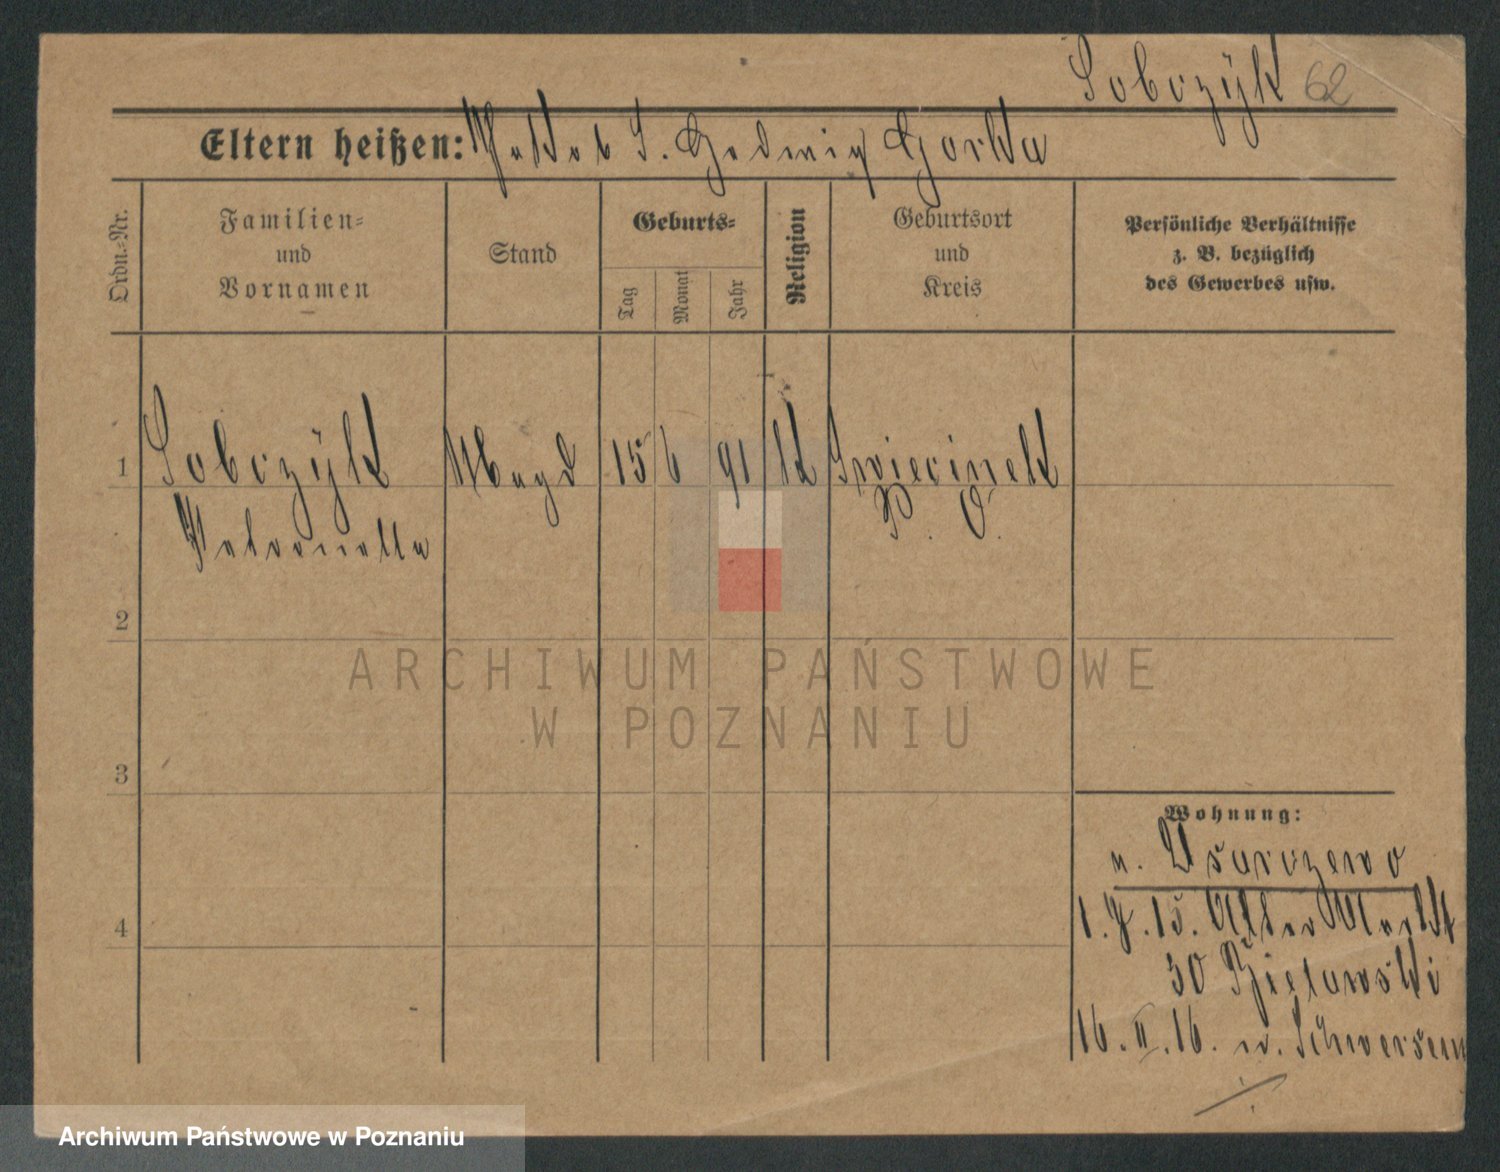 Sobczÿk 62
Eltern heißen: Jakob S. Hedwig Gorka
Ordn.-Nr.
Familien-
und
Vornamen
Stand
Geburts-
Tag
Monat
Jahr
Religion
Geburtsort
und
Kreis
Persönliche Verhältnisse
z. B. bezüglich
des Gewerbes usw.
1 Sobczÿk Magd 15 6 91 k Swiecinek
Petronella P. O.
2
3
4
Wohnung:
1. 15. Alter Markt
30
16. II. 16. n. Schwersenz
ARCHIWUM PAŃSTWOWE
W POZNANIU
Archiwum Państwowe w Poznaniu